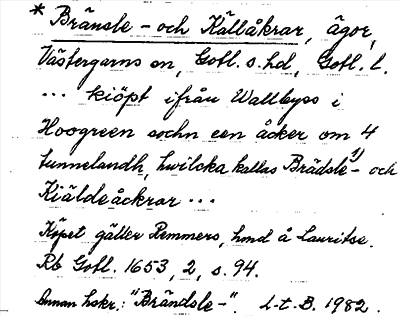 * Bränsle- och Källåkrar, ägor,
Västergarns sn, Gotl. s. hd, Gotl. l.
... kiöpt ifrån Wallbyss i
Hoogreen sochn een åcker om 4
tunnelandh, hwilcka kallas Brädsle-1) och
Kiäldeåckrar ...
Köpet gäller Remmers, hmd å Lauritse.
Rb Gotl. 1653, 2, s. 94.
Annan hskr.: "Brändsle-". L-t. B. 1982.